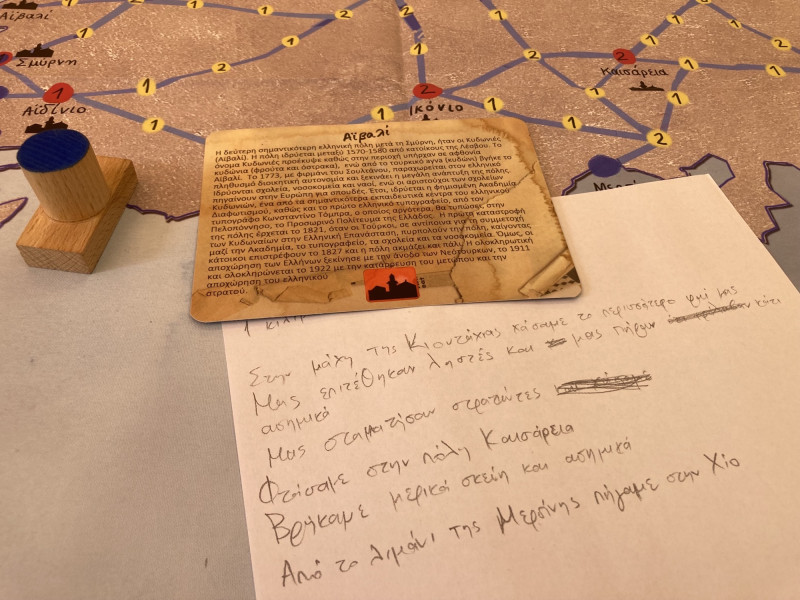 Αϊβαλί
1
2
2
2
1
1
Σμύρνη
1
2
1
1
2
1
1
1
1
2
Καισάρεια
1
1
1
Αϊδίνιο
1
1
2
Ικόνιο
1
1
1
2
Αϊβαλί
Η δεύτερη σημαντικότερη ελληνική πόλη μετά τη Σμύρνη, ήταν οι Κυδωνιές
(Αϊβαλί). Η πόλη ιδρύεται μεταξύ 1570-1580 από κατοίκους της Λέσβου. Το
όνομα Κυδωνιές προέκυψε καθώς στην περιοχή υπήρχαν σε αφθονία
κυδώνια (φρούτα και όστρακα), ενώ από το τουρκικό ayva (κυδώνι) βγήκε το
Αϊβαλί. Το 1773, με φιρμάνι του Σουλτάνου, παραχωρείται στον ελληνικό
πληθυσμό διοικητική αυτονομία και ξεκινάει η μεγάλη ανάπτυξη της πόλης.
Ιδρύονται σχολεία, νοσοκομεία και ναοί, ενώ οι αριστούχοι των σχολείων
πηγαίνουν στην Ευρώπη για σπουδές. Έτσι, ιδρύεται η φημισμένη Ακαδημία
Κυδωνιών, ένα από τα σημαντικότερα εκπαιδευτικά κέντρα του ελληνικού
Διαφωτισμού, καθώς και το πρώτο ελληνικό τυπογραφείο, από τον
τυπογράφο Κωνσταντίνο Τόμπρα, ο οποίος αργότερα, θα τυπώσει στην
Πελοπόννησο, το Προσωρινό Πολίτευμα της Ελλάδος. Η πρώτη καταστροφή
της πόλης έρχεται το 1821, όταν οι Τούρκοι, σε αντίποινα για τη συμμετοχή
των Κυδωνιών στην Ελληνική Επανάσταση, πυρπολούν την πόλη, καίγοντας
μαζί την Ακαδημία, το τυπογραφείο, τα σχολεία και τα νοσοκομεία. Όμως, οι
κάτοικοι επιστρέφουν το 1827 και η πόλη ακμάζει και πάλι. Η ολοκληρωτική
αποχώρηση των Ελλήνων ξεκίνησε με την άνοδο των Νεότουρκων, το 1911
και ολοκληρώνεται το 1922 με την κατάρρευση του μετώπου και την
αποχώρηση του ελληνικού
στρατού.
Στην μάχη της Κιουτάχιας χάσαμε το περισσότερο φαΐ μας
Μας επιτέθηκαν ληστές και μας πήραν κάτι
ασημικά
Μας σταμάτησαν στρατιώτες
Φτάσαμε στην πόλη Καισάρεια
Βρήκαμε μερικά σκεύη και ασημικά
Από το λιμάνι της Μερσίνης πήγαμε στην Χίο